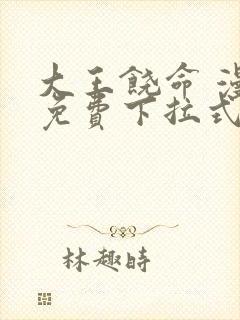 大王饶命 漫
免費下拉式
林趣時